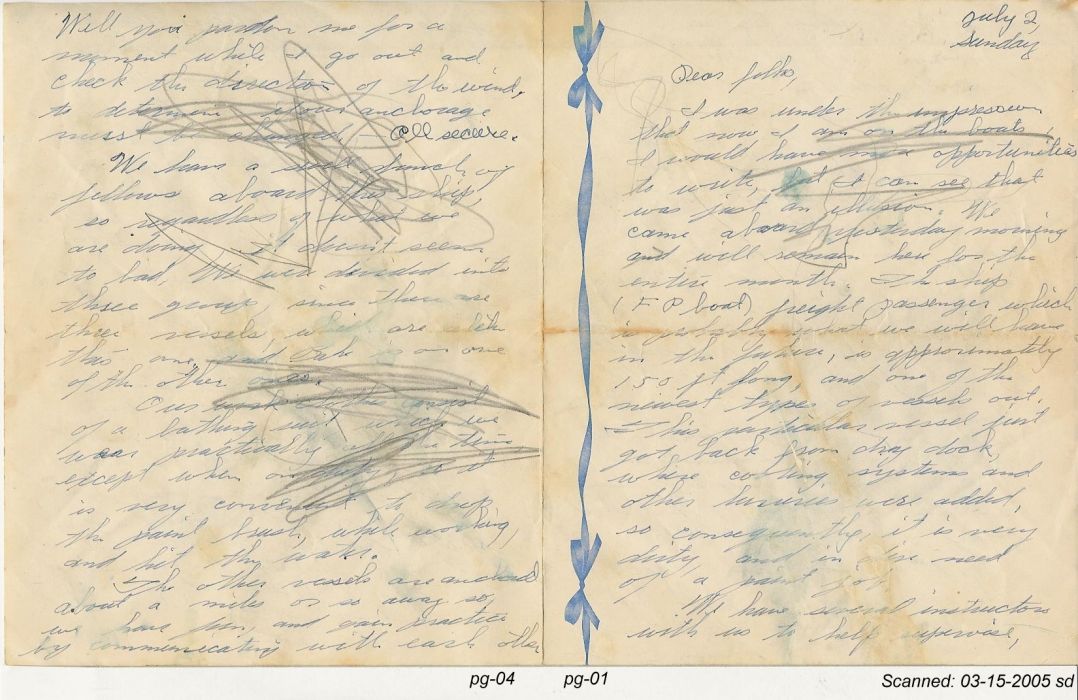 Will you pardon me for a
moment while I go out and
check the direction of the wind,
to determine if our anchorage
must be changed, — All secure.
We have a swell bunch of
fellows aboard this ship,
so regardless of what we
are doing it doesn't seem
to bad, We were divided into
three groups, since there are
three vessels, which are like
this one, and is on one
of the other ones.
Our work clothes consist
of a bathing suit which we
wear practically all the time
except when on duty, so it
is very convenient to drop
the paint brush, while working,
and hit the water.
The other vessels are anchored
about a mile or so away so,
we have fun, and gain practice
by communicating with each other
July 2,
Sunday
Dear folks,
I was under the impression
that now I am on the boats,
I would have more opportunities
to write, but I can see that
was just an illusion. We
came aboard yesterday morning
and will remain here for the
entire month. The ship
(F P boat, freight passenger which
is probably what we will have
in the future, is approximately
150 ft long, and one of the
newest types of vessels out.
This particular vessel just
got back from dray dock,
where cooling systems and
other luxuries were added,
so consequently, it is very
dirty and in the need
of a paint job.
We have several instructors
with us to help supervise,
pg-04
pg-01
Scanned: 03-15-2005 sd